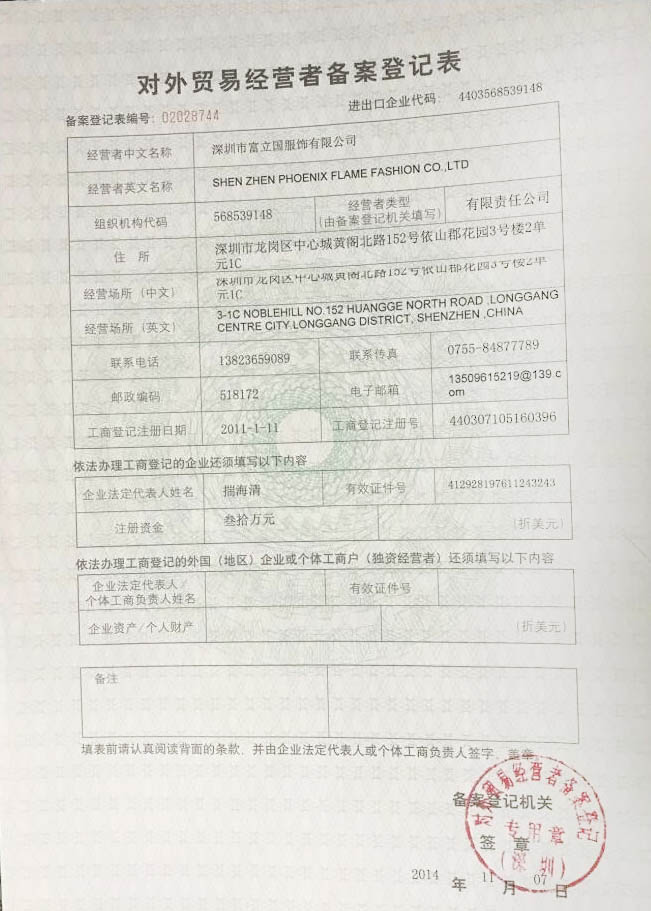 对外贸易经营者备案登记表
备案登记表编号：02028744
进出口企业代码： 4403568539148
经营者中文名称 深圳市富立国服饰有限公司
经营者英文名称 SHEN ZHEN PHOENIX FLAME FASHION CO.,LTD
组织机构代码 568539148 经营者类型 有限责任公司
(由备案登记机关填写)
住 所 深圳市龙岗区中心城黄阁北路152号依山郡花园3号楼2单
元1C
深圳市龙岗区中心城黄阁北路152号依山郡花园3号楼2单
经营场所（中文） 元1C
3-1C NOBLEHILL NO.152 HUANGGE NORTH ROAD ,LONGGANG
经营场所（英文） CENTRE CITY.LONGGANG DISTRICT, SHENZHEN ,CHINA
联系电话 13823659089 联系传真 0755-84877789
邮政编码 518172 电子邮箱 13509615219@139.c
om
工商登记注册日期 2011-1-11 工商登记注册号 440307105160396
依法办理工商登记的企业还须填写以下内容
企业法定代表人姓名 揣海清 有效证件号 412928197611243243
注册资金 叁拾万元 (折美元)
依法办理工商登记的外国（地区）企业或个体工商户（独资经营者）还须填写以下内容
企业法定代表人/
个体工商负责人姓名 有效证件号
企业资产/个人财产 (折美元)
备注
填表前请认真阅读背面的条款，并由企业法定代表人或个体工商负责人签字、盖章。
对外贸易经营者备案登记
备案登记机关
专用章
签 章
(深圳)
2014 年 11 月 07 日